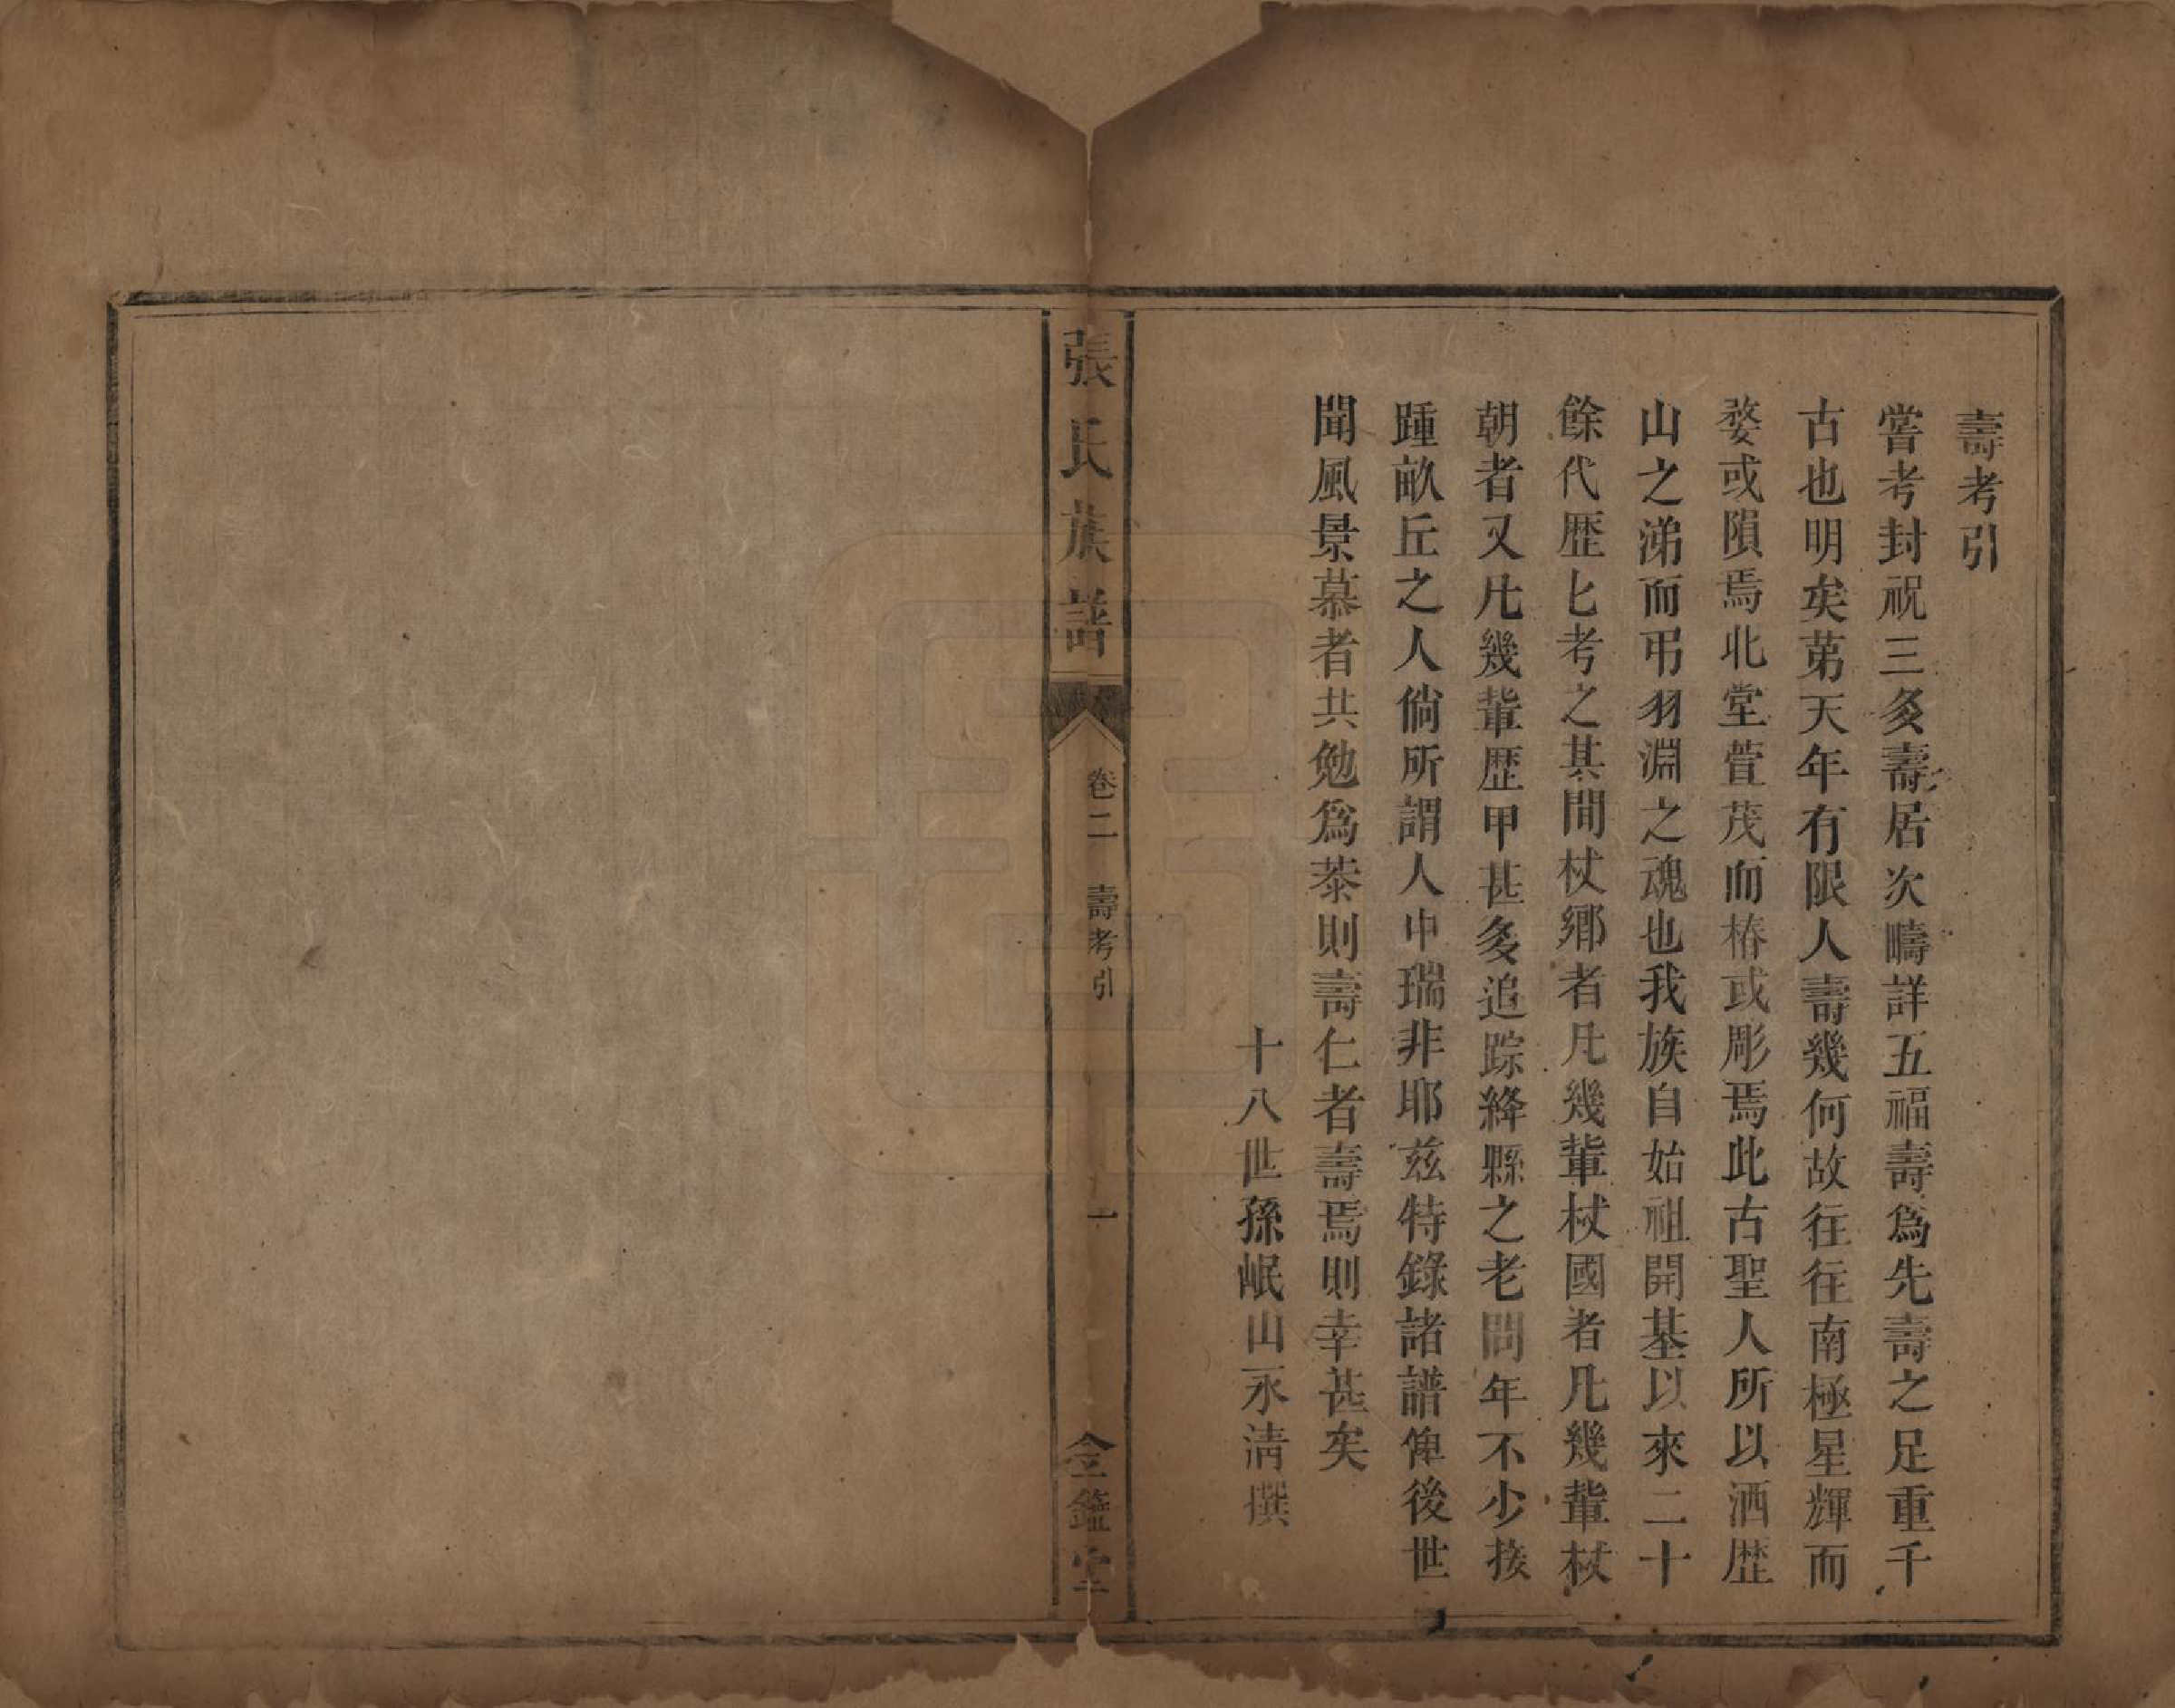 壽考引
嘗考封祝三多壽居次疇詳五福壽為先壽之足重千
古也明矣苐天年有限人壽幾何故往往南極星輝而
婺或隕焉北堂萱茂而椿或彫焉此古聖人所以洒歷
山之涕而弔羽淵之魂也我族自始祖開基以來二十
餘代歷匕考之其間杖鄉者凡幾輩杖國者凡幾輩杖
朝者又凡幾輩歷甲甚多追踪絳縣之老問年不少接
踵畝丘之人倘所謂人中瑞非耶茲特錄諸譜俾後世
聞風景慕者共勉為恭則壽仁者壽焉則幸甚矣
十八世孫岷山永清撰
張氏族譜
卷二 壽考引
一
金鑑堂